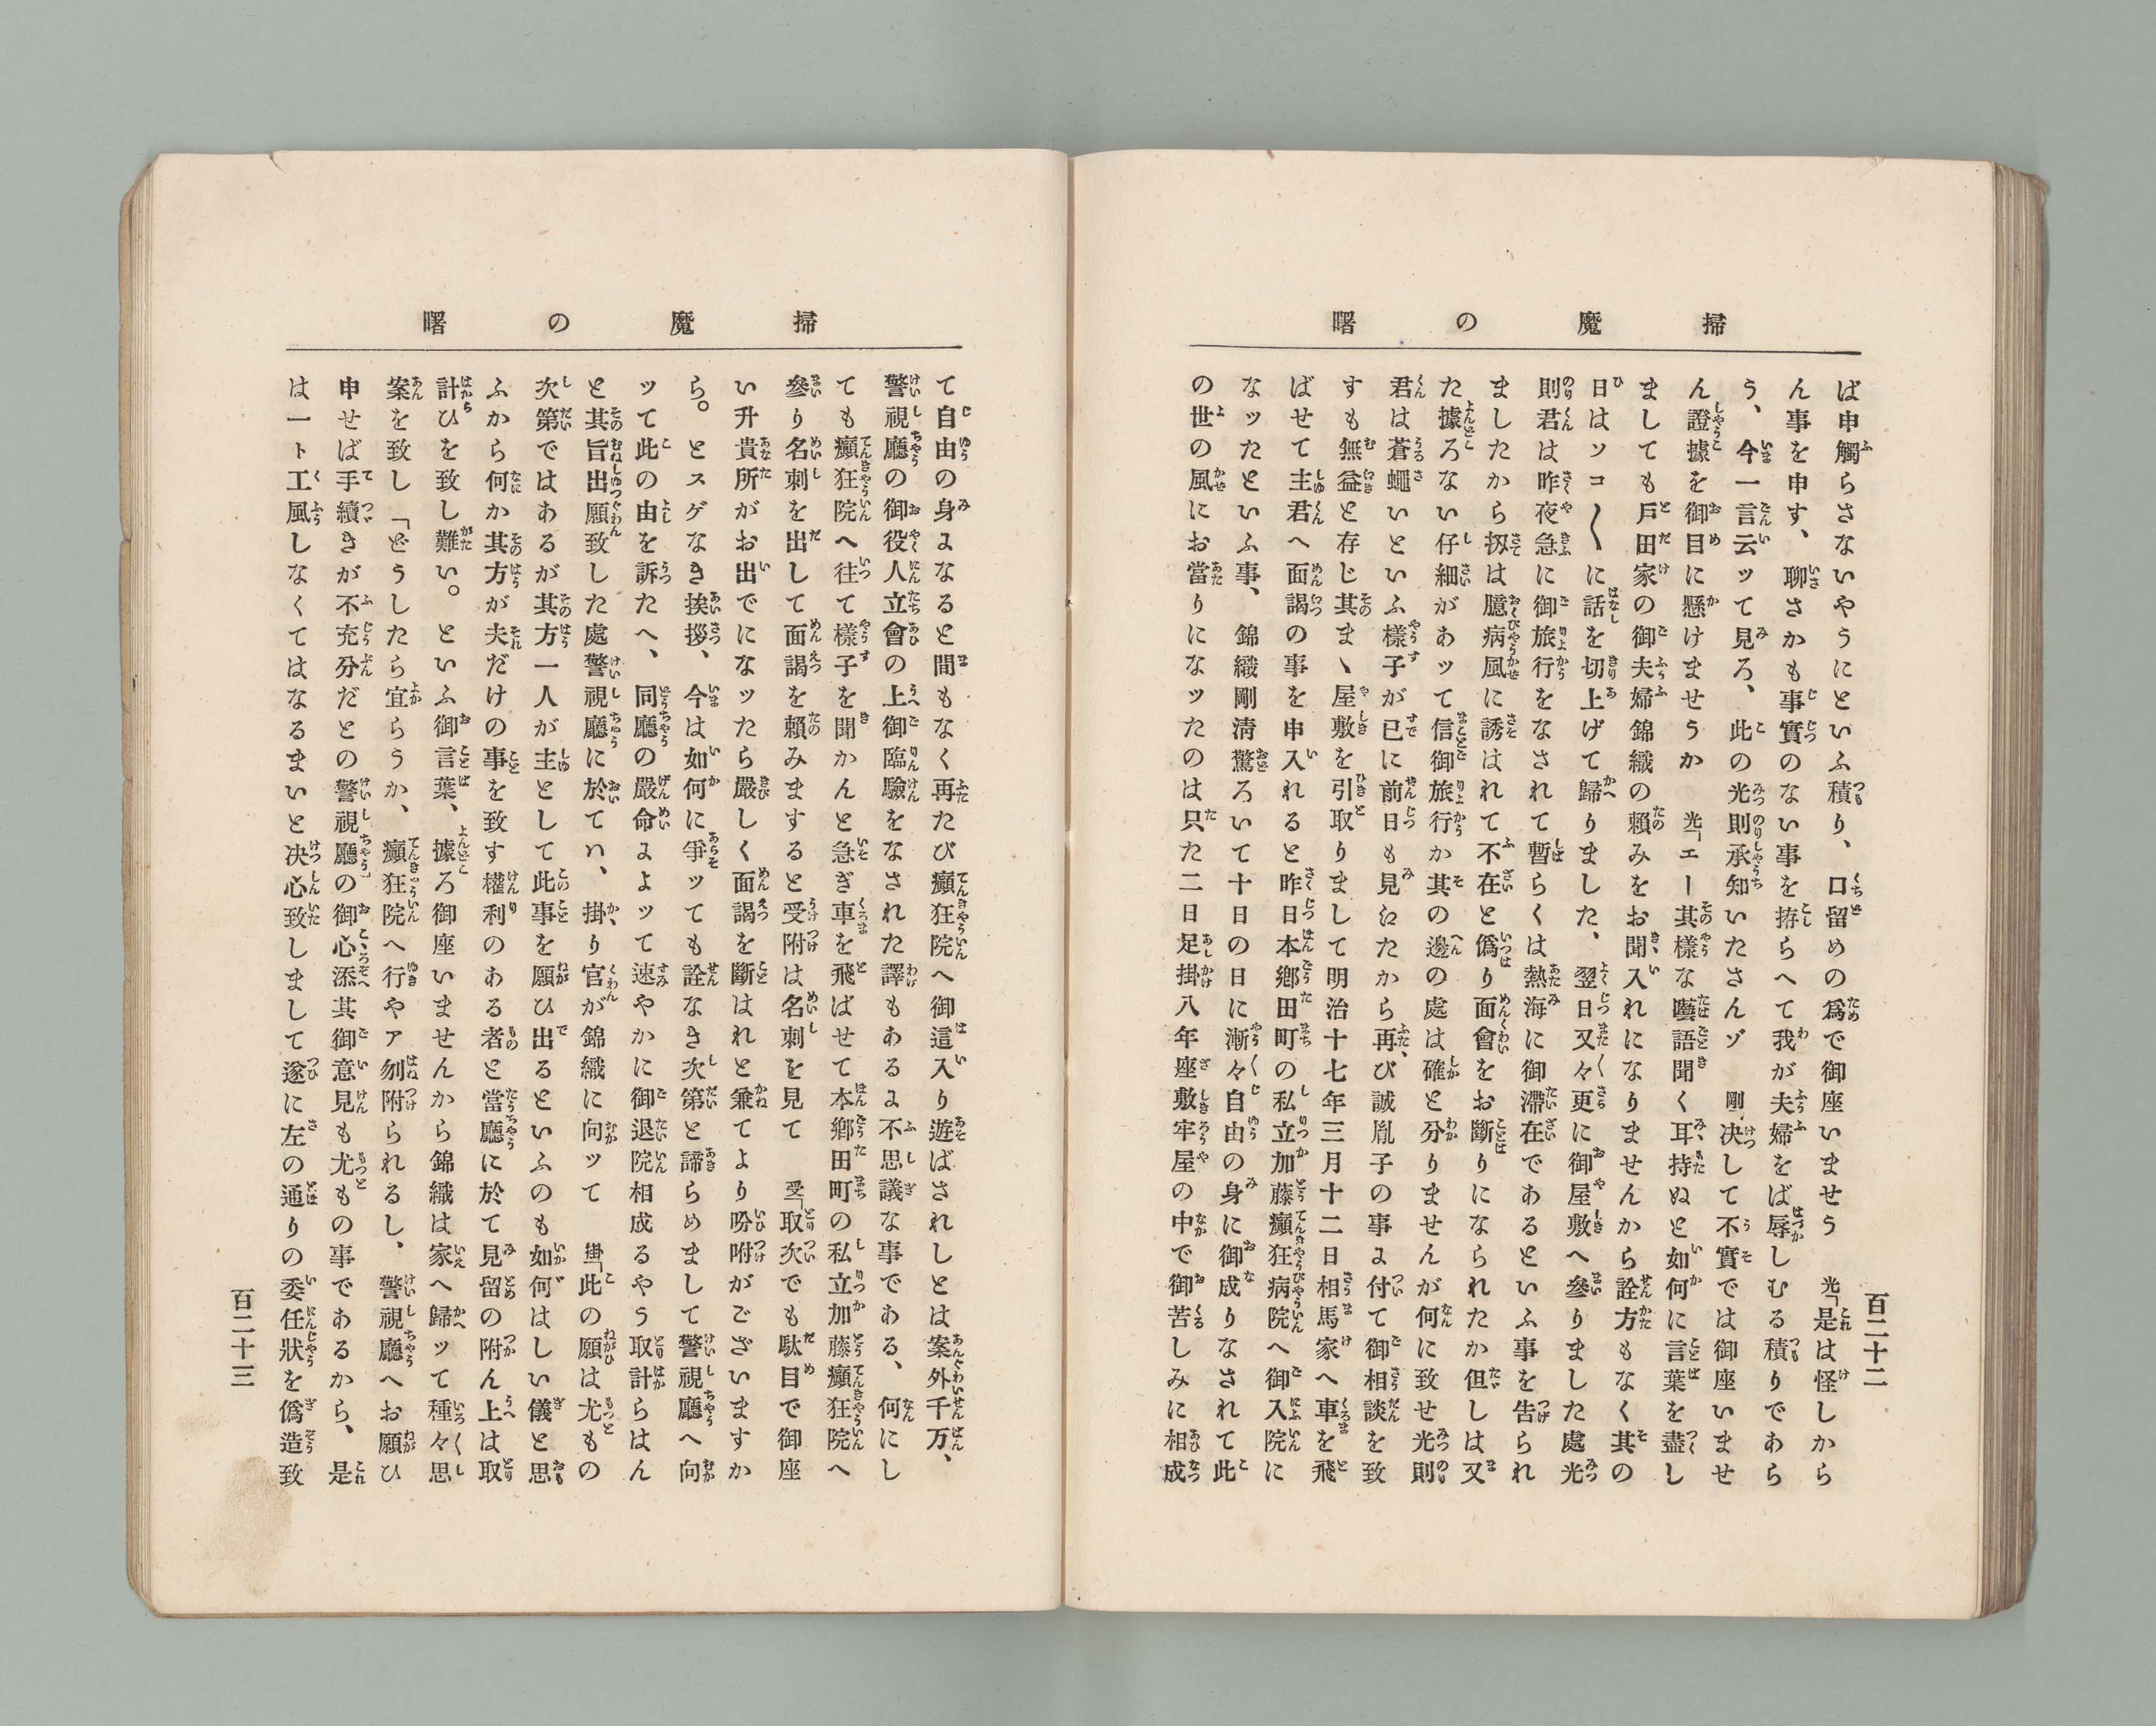 掃魔の曙
百二十二
ば申觸らさないやうにといふ積り、口留めの爲で御座いませう　光「是は怪しから
ん事を申す、聊さかも事實のない事を拵らへて我が夫婦をば辱しむる積りであら
う、今一言云ッて見ろ、此の光則承知いたさんゾ　剛「决して不實では御座いませ
ん證據を御目に懸けませうか　光「エー其樣な囈語聞く耳持ぬと如何に言葉を盡し
ましても戸田家の御夫婦錦織の賴みをお聞入れになりませんから詮方もなく其の
日はソコ〱に話を切上げて歸りました、翌日又々更に御屋敷へ參りました處光
則君は昨夜急に御旅行をなされて暫らくは熱海に御滯在であるといふ事を告られ
ましたから扨は臆病風に誘はれて不在と僞り面會をお斷りになられたか但しは又
た據ろない仔細があッて信御旅行か其の邊の處は確と分りませんが何に致せ光則
君は蒼蠅いといふ樣子が已に前日も見江たから再び誠胤子の事ょ付て御相談を致
すも無益と存じ其まゝ屋敷を引取りまして明治十七年三月十二日相馬家へ車を飛
ばせて主君へ面謁の事を申入れると昨日本鄕田町の私立加藤癲狂病院へ御入院に
なッたといふ事、錦織剛淸驚ろいて十日の日に漸々自由の身に御成りなされて此
の世の風にお當りになッたのは只た二日足掛八年座敷牢屋の中で御苦しみに相成
掃魔の曙
て自由の身ょなると間もなく再たび癲狂院へ御這入り遊ばされしとは案外千万、
警視廳の御役人立會の上御臨驗をなされた譯もあるょ不思議な事である、何にし
ても癲狂院へ往て樣子を聞かんと急ぎ車を飛ばせて本鄕田町の私立加藤癲狂院へ
參り名刺を出して面謁を賴みますると受附は名刺を見て　受「取次でも駄目で御座
い升貴所がお出でになッたら嚴しく面謁を斷はれと兼てより吩咐がございますか
ら。とスゲなき挨拶、今は如何に爭ッても詮なき次第と諦らめまして警視廳へ向
ッて此の由を訴たへ、同廳の嚴命ょよッて速やかに御退院相成るやう取計らはん
と其旨出願致した處警視廳に於てハ、掛り官が錦織に向ッて　掛「此の願は尤もの
次第ではあるが其方一人が主として此事を願ひ出るといふのも如何はしい儀と思
ふから何か其方が夫だけの事を致す權利のある者と當廳に於て見留の附ん上は取
計ひを致し難い。といふ御言葉、據ろ御座いませんから錦織は家へ歸ッて種々思
案を致し「どうしたら宜らうか、癲狂院へ行やア刎附られるし、警視廳へお願ひ
申せば手續きが不充分だとの警視廳の御心添其御意見も尤もの事であるから、是
は一ト工風しなくてはなるまいと决心致しまして遂に左の通りの委任狀を僞造致
百二十三